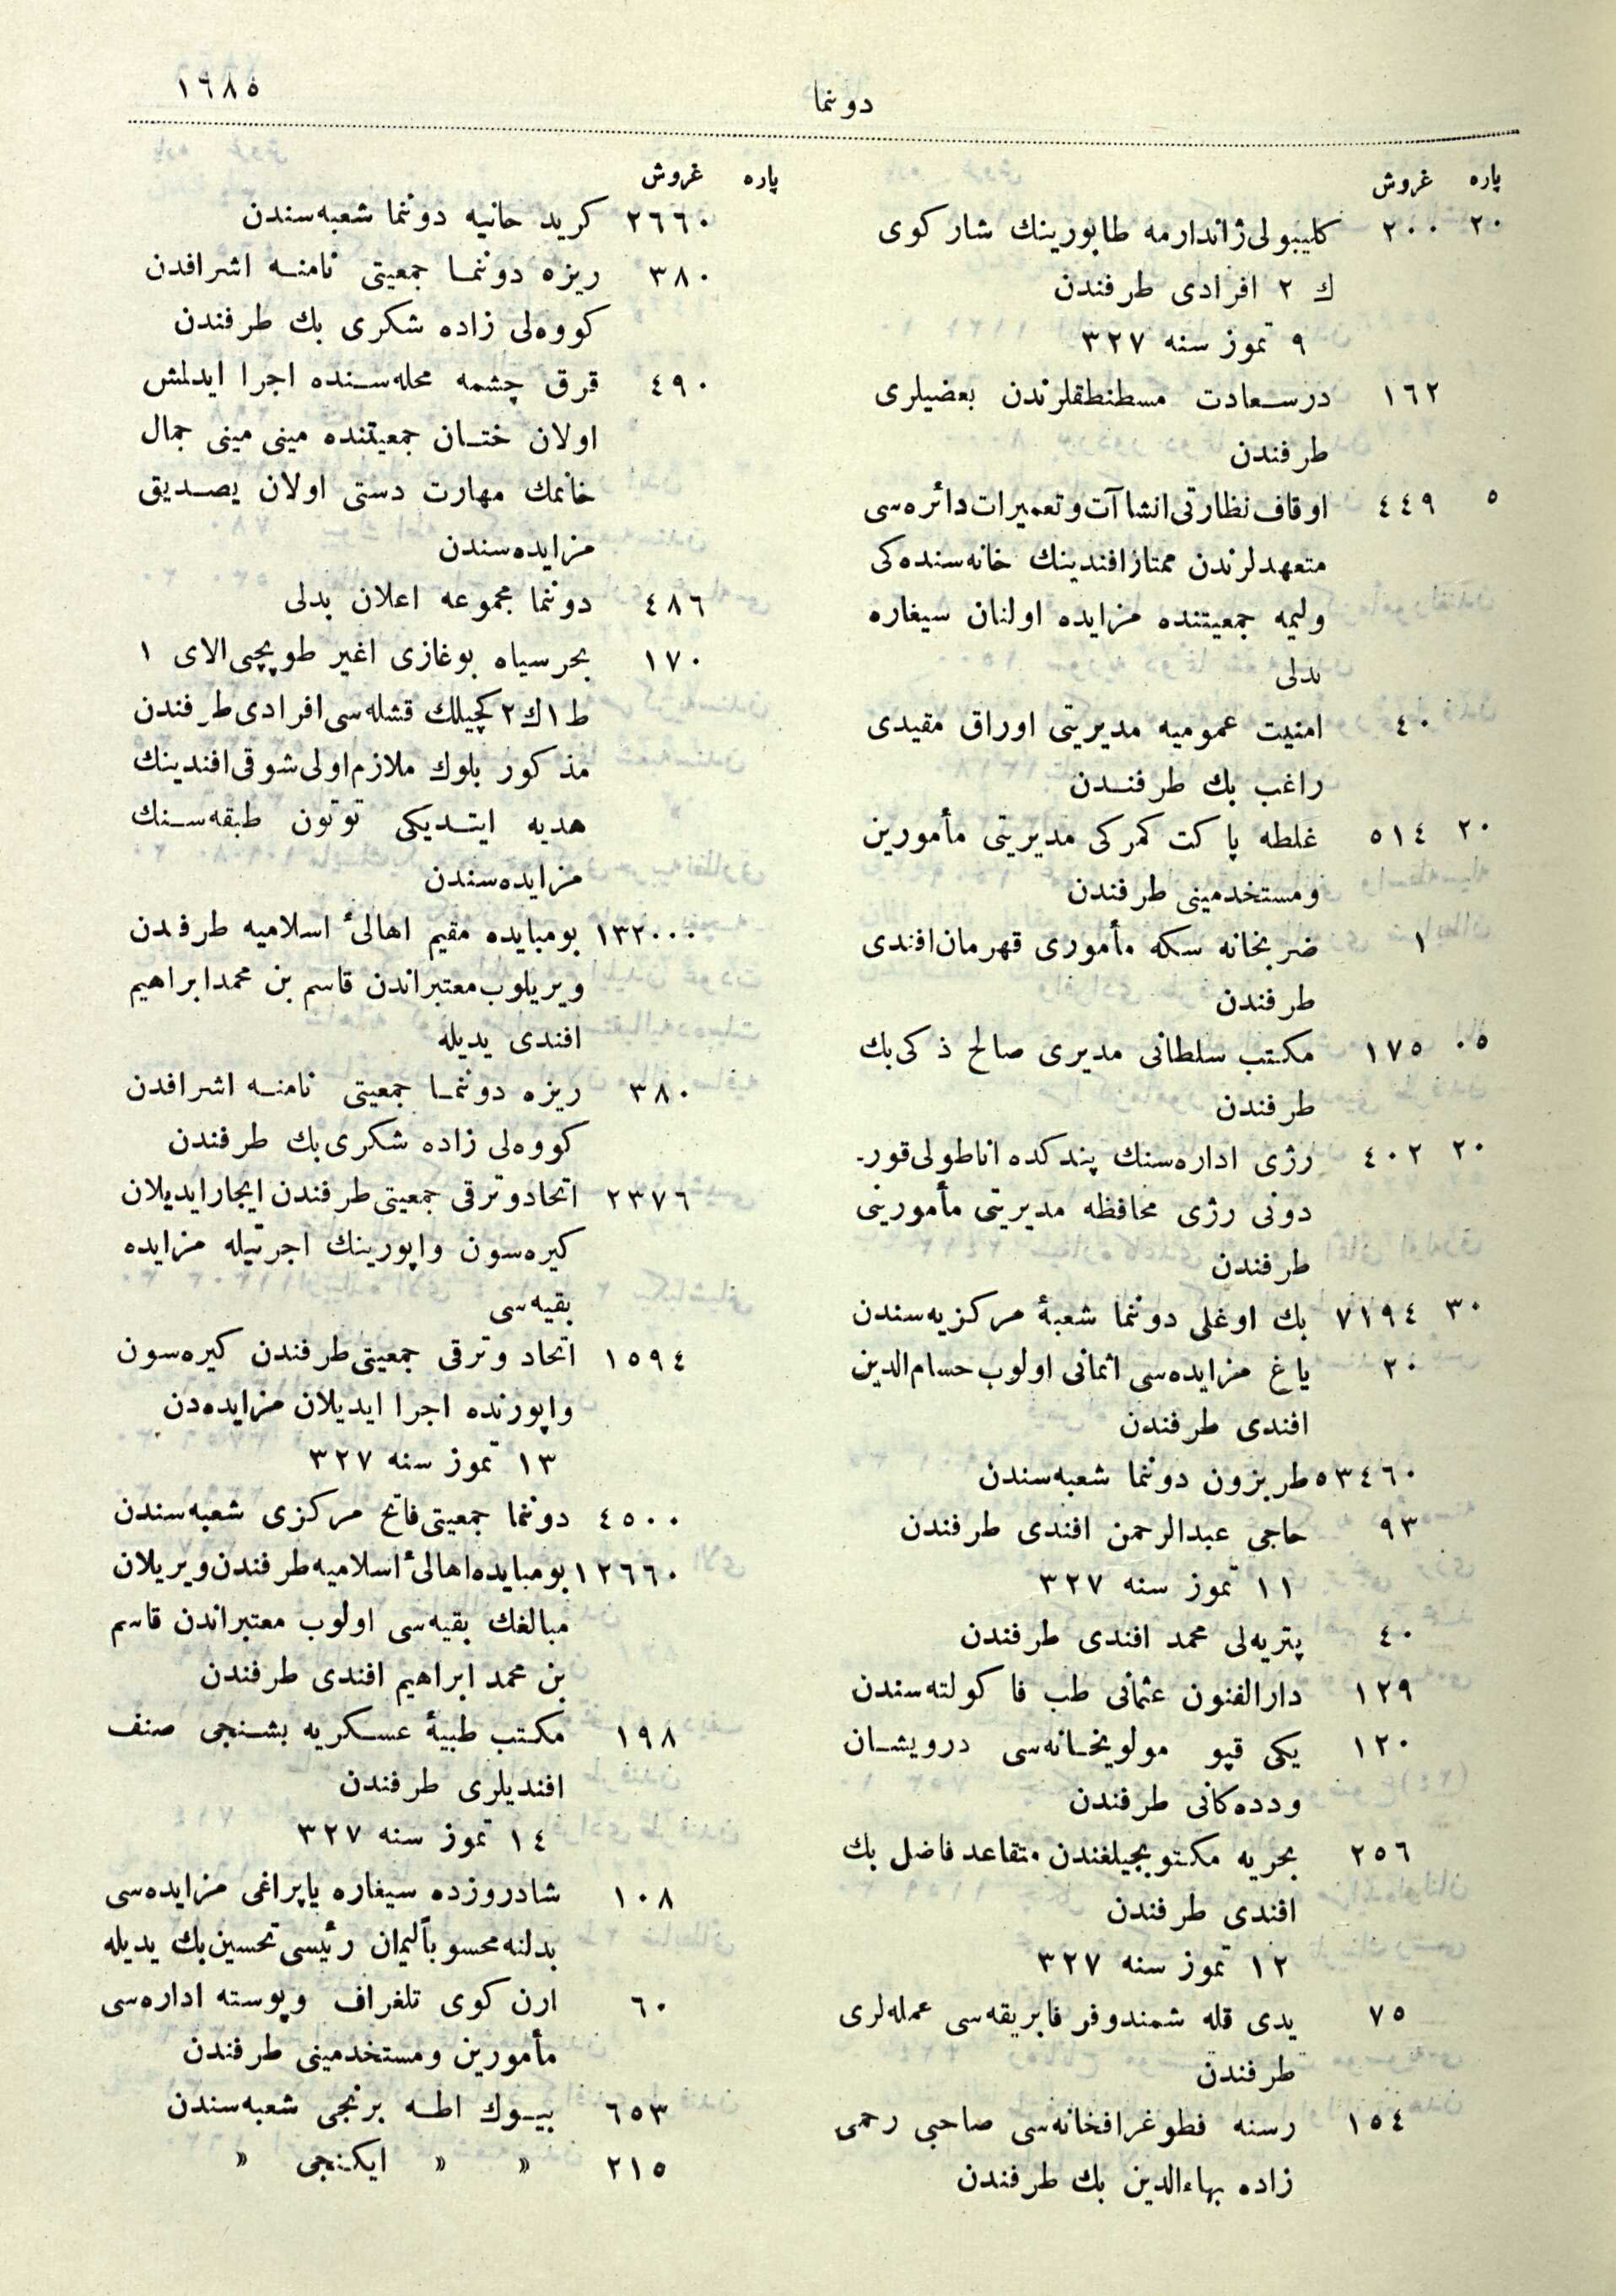 ١٩٨٥
دونما
پاره غروش
٢٠ ٢٠٠ كليبولی ژاندارمه طابورينك شاركوی
ك ٢ افرادی طرفندن
٩ تموز سنه ٣٢٧
١٦٢ درسعادت مستنطقلرندن بعضيلری
طرفندن
٥ ٤٤٩ اوقاف نظارتی انشاآت و تعميرات دائره‌سی
متعهدلرندن ممتاز افندينك خانه‌سنده‌كی
وليمه جمعيتنده مزايده اولنان سيغاره
بدلی
٤٠ امنيت عموميه مديريتی اوراق مقيدی
راغب بك طرفندن
٢٠ ٥١٤ غلطه پاكت كمركی مديريتی مأمورين
ومستخدمينی طرفندن
١ ضربخانه سكه مأموری قهرمان افندی
طرفندن
٠٥ ١٧٥ مكتب سلطانی مديری صالح ذكی بك
طرفندن
٢٠ ٤٠٢ رژی اداره‌سنك پندكده اناطولی قور-
دونی رژی محافظه مديريتی مأمورينی
طرفندن
٣٠ ٧١٩٤ بك اوغلی دونما شعبهٔ مركزيه‌سندن
٢٠ ياغ مزايده‌سی اثمانی اولوب حسام‌الدين
افندی طرفندن
٥٣٤٦٠ طربزون دونما شعبه‌سندن
٩٣ حاجی عبدالرحمن افندی طرفندن
١١ تموز سنه ٣٢٧
٤٠ پتريه‌لی محمد افندی طرفندن
١٢٩ دارالفنون عثمانی طب فاكولته‌سندن
١٢٠ يكی قپو مولويخانه‌سی درويشان
ودده‌كانی طرفندن
٢٥٦ بحريه مكتوبجيلغندن متقاعد فاضل بك
افندی طرفندن
١٢ تموز سنه ٣٢٧
٧٥ يدی قله شمندوفر فابريقه‌سی عمله‌لری
طرفندن
١٥٤ رسنه فطوغرافخانه‌سی صاحبی رحمی
زاده بهاءالدين بك طرفندن
پاره غروش
٢٦٦٠ كريد حانيه دونما شعبه‌سندن
٣٨٠ ريزه دونما جمعيتی نامنه اشرافدن
كووه‌لی زاده شكری بك طرفندن
٤٩٠ قرق چشمه محله‌سنده اجرا ايدلمش
اولان ختان جمعيتنده مينی مينی جمال
خانمك مهارت دستی اولان يصديق
مزايده‌سندن
٤٨٦ دونما مجموعه اعلان بدلی
١٧٠ بحرسياه بوغازی اغير طوپچی الای ١
ط ١ ك ٢ كچيلك قشله‌سی افرادی طرفندن
مذكور بلوك ملازم اولی شوقی افندينك
هديه ايتديكی توتون طبقه‌سنك
مزايده‌سندن
١٣٢٠٠٠ بومبايده مقيم اهالیٔ اسلاميه طرفندن
ويريلوب معتبراندن قاسم بن محمد ابراهيم
افندی يديله
٣٨٠ ريزه دونما جمعيتی نامنه اشرافدن
كووه‌لی زاده شكری بك طرفندن
٢٣٧٦ اتحاد و ترقی جمعيتی طرفندن ايجار ايديلان
كيره‌سون واپورينك اجرتيله مزايده
بقيه‌سی
١٥٩٤ اتحاد و ترقی جمعيتی طرفندن كيره‌سون
واپورنده اجرا ايديلان مزايده‌دن
١٣ تموز سنه ٣٢٧
٤٥٠٠ دونما جمعيتی فاتح مركزی شعبه‌سندن
١٢٦٦٠ بومبايده اهالیٔ اسلاميه طرفندن ويريلان
مبالغك بقيه‌سی اولوب معتبراندن قاسم
بن محمد ابراهيم افندی طرفندن
١٩٨ مكتب طبيهٔ عسكريه بشنجی صنف
افنديلری طرفندن
١٤ تموز سنه ٣٢٧
١٠٨ شادروزده سيغاره ياپراغی مزايده‌سی
بدلنه محسوباً ليمان رئيسی تحسين بك يديله
٦٠ ارن كوی تلغراف وپوسته اداره‌سی
مأمورين ومستخدمينی طرفندن
٦٥٣ بيوك اطه برنجی شعبه‌سندن
٢١٥ » » ايكنجی »